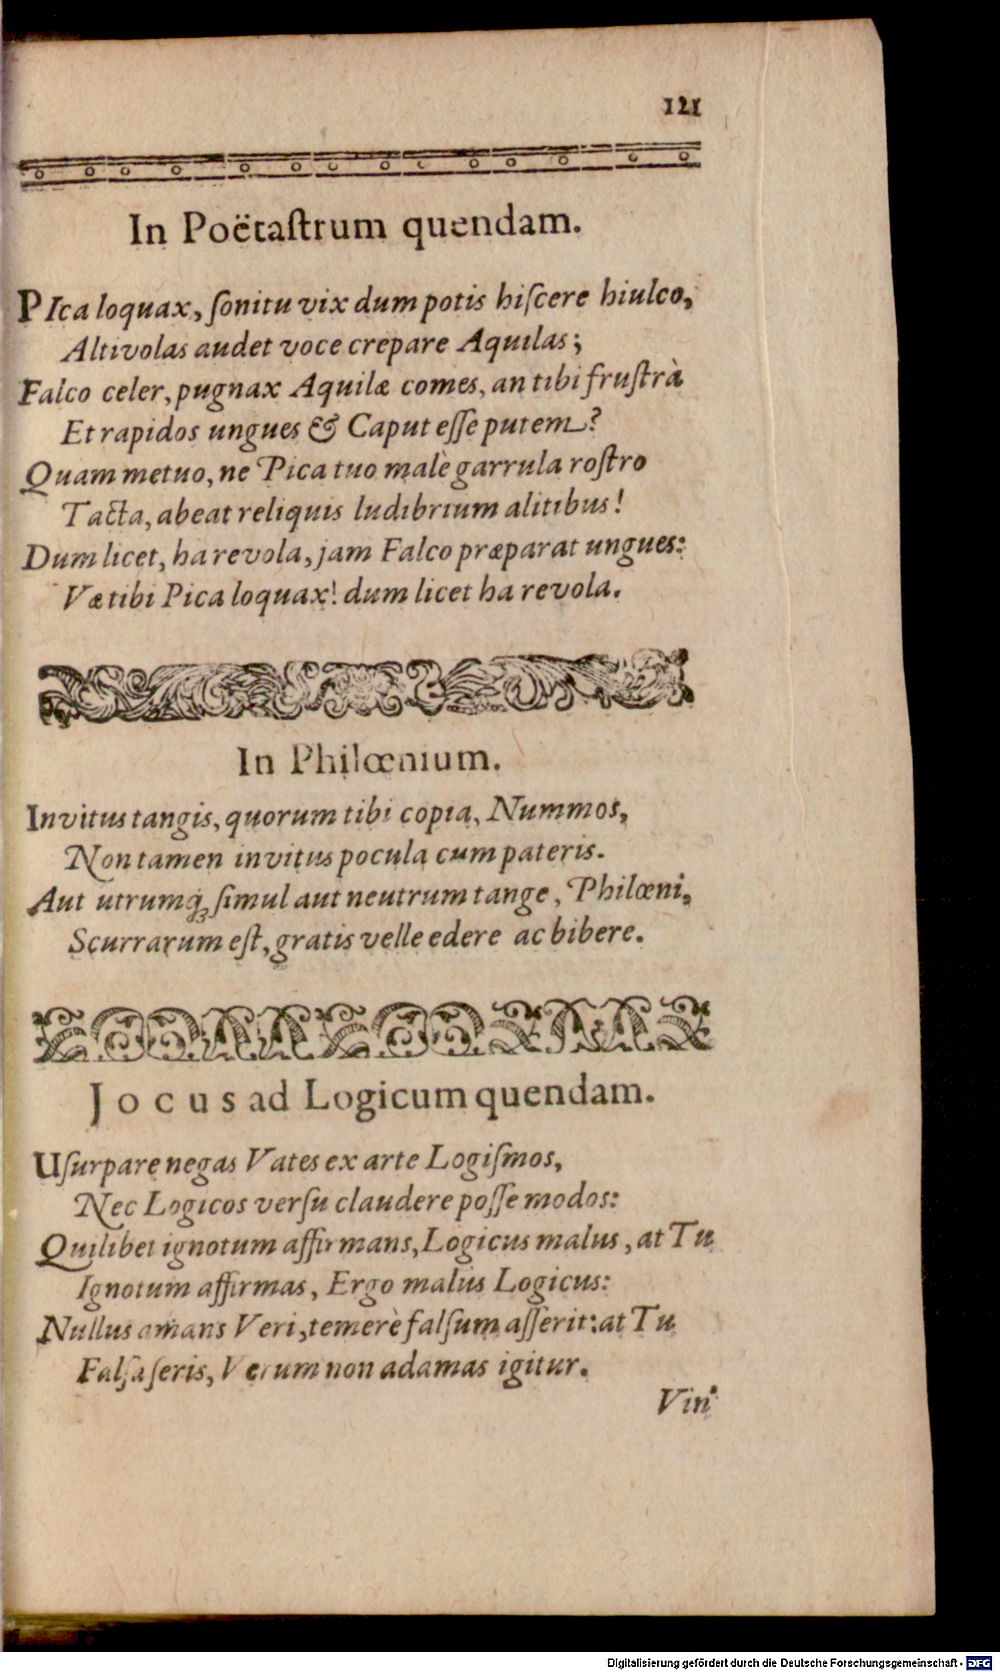 121
In Poëtaſtrum quendam.
PIca loquax, ſonitu vix dum potis hiſcere hiulco,
Altivolas audet voce crepare Aquilas;
Falco celer, pugnax Aquilæ comes, an tibi fruſtrà
Et rapidos ungues & Caput eſſe putem?
Quam metuo, ne Pica tuo malè garrula roſtro
Tacta, abeat reliquis ludibrium alitibus!
Dum licet, ha revola, jam Falco præparat ungues:
Væ tibi Pica loquax! dum licet ha revola.
In Philœnium.
Invitus tangis, quorum tibi copia, Nummos,
Non tamen invitus pocula cum pateris.
Aut utrumq́; ſimul aut neutrum tange, Philœni,
Scurrarum eſt, gratis velle edere ac bibere.
Jocus ad Logicum quendam.
Uſurpare negas Vates ex arte Logiſmos,
Nec Logicos verſu claudere poſſe modos:
Quilibet ignotum affirmans, Logicus malus, at Tu
Ignotum affirmas, Ergo malus Logicus:
Nullus amans Veri, temerè falſum aſſerit: at Tu
Falſa ſeris, Verum non adamas igitur.
Vin
Digitalisierung gefördert durch die Deutsche Forschungsgemeinschaft - DFG